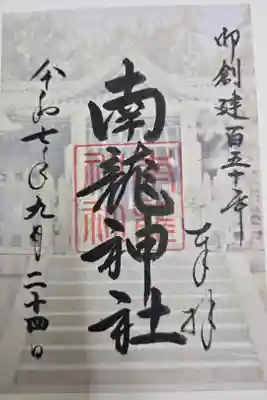 御創建百五十年
奉拝
南龍神社
令和七年九月二十四日